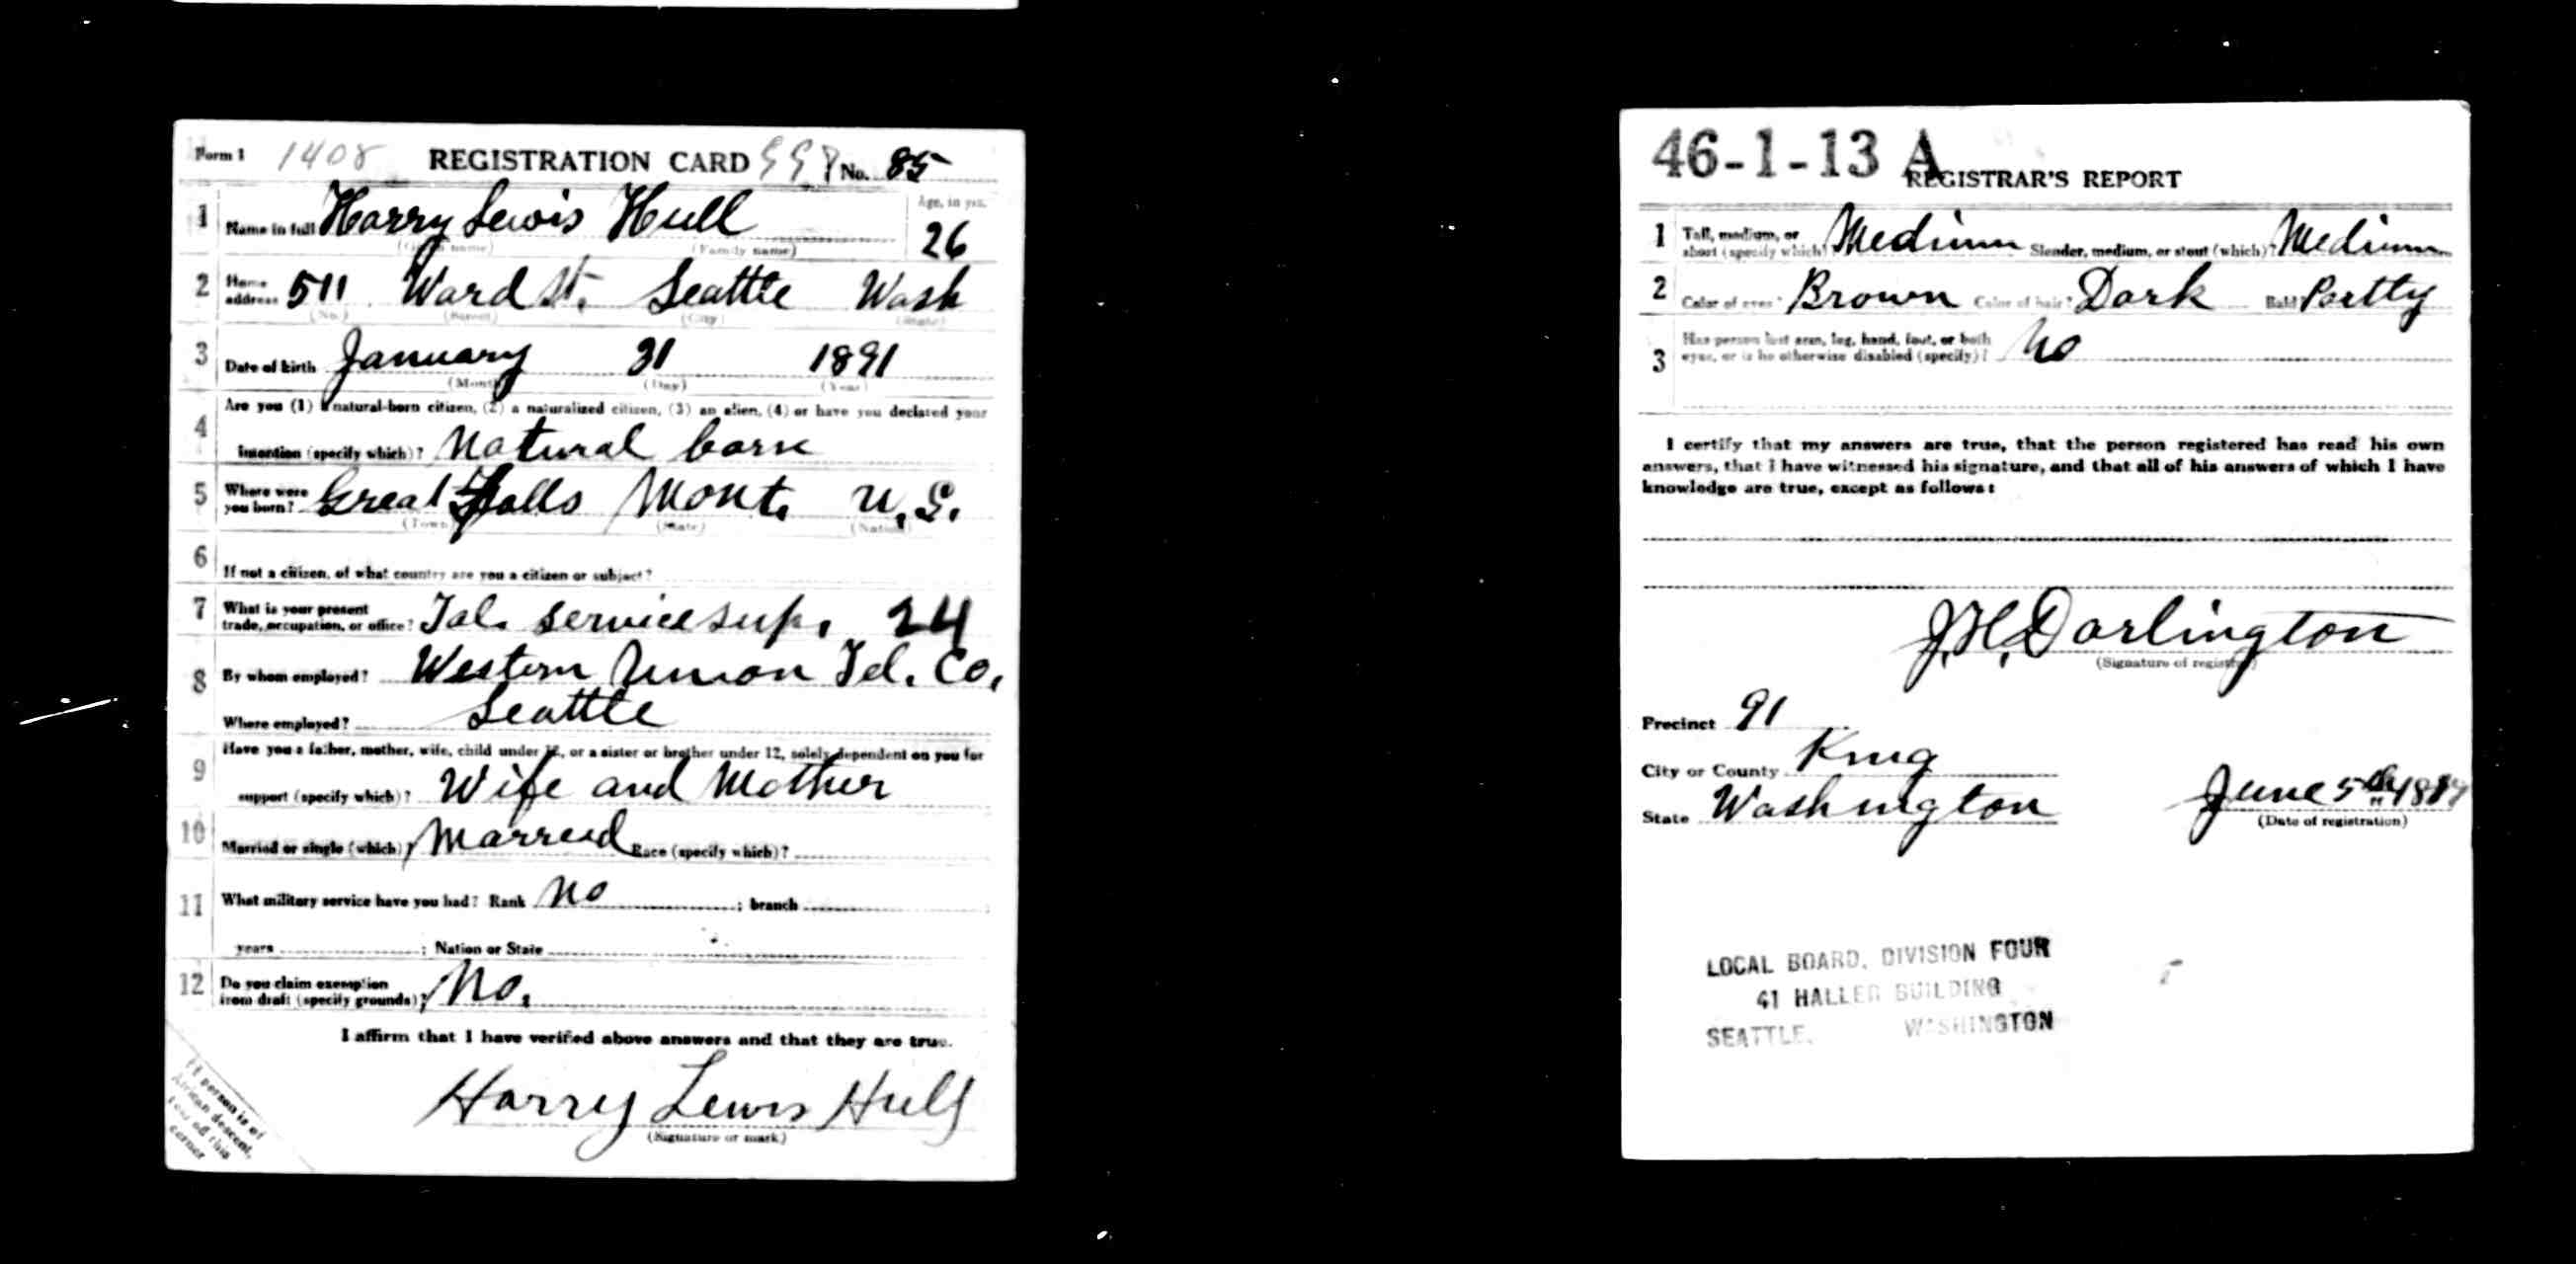 Form 1 1408 REGISTRATION CARD No. 85
1 Name in full Harry Lewis Hull Age, in yrs. 26
(Given name) (Family name)
2 Home address 511 Ward St. Seattle Wash
(No.) (Street) (City) (State)
3 Date of birth January 31 1891
(Month) (Day) (Year)
4 Are you (1) a natural-born citizen, (2) a naturalized citizen, (3) an alien, (4) or have you declared your
intention (specify which)? Natural born
5 Where were you born? Great Falls Mont. U.S.
(Town) (State) (Nation)
6 If not a citizen, of what country are you a citizen or subject?
7 What is your present
trade, occupation, or office? service sup. 24
8 By whom employed? Western Union Tel. Co.
Where employed? Seattle
9 Have you a father, mother, wife, child under 12, or a sister or brother under 12, solely dependent on you for
support (specify which)? Wife and Mother
10 Married or single (which)? Marreid Race (specify which)?
11 What military service have you had? Rank No ; branch
years ; Nation or State
12 Do you claim exemption
from draft (specify grounds)? No.
I affirm that I have verified above answers and that they are true.
Harry Lewis Hull
(Signature or mark)
If person is of
African descent,
tear off this
corner
46-1-13 A
REGISTRAR'S REPORT
1 Tall, medium, or
short (specify which)? Medium Slender, medium, or stout (which)? Medium
2 Color of eyes? Brown Color of hair? Dark Bald? Partty
3 Has person lost arm, leg, hand, foot, or both
eyes, or is he otherwise disabled (specify)? No
I certify that my answers are true, that the person registered has read his own
answers, that I have witnessed his signature, and that all of his answers of which I have
knowledge are true, except as follows:
J.H. Darlington
(Signature of registrar)
Precinct 91
City or County King
State Washington June 5th
(Date of registration)
LOCAL BOARD, DIVISION FOUR
41 HALLER BUILDING
SEATTLE, WASHINGTON